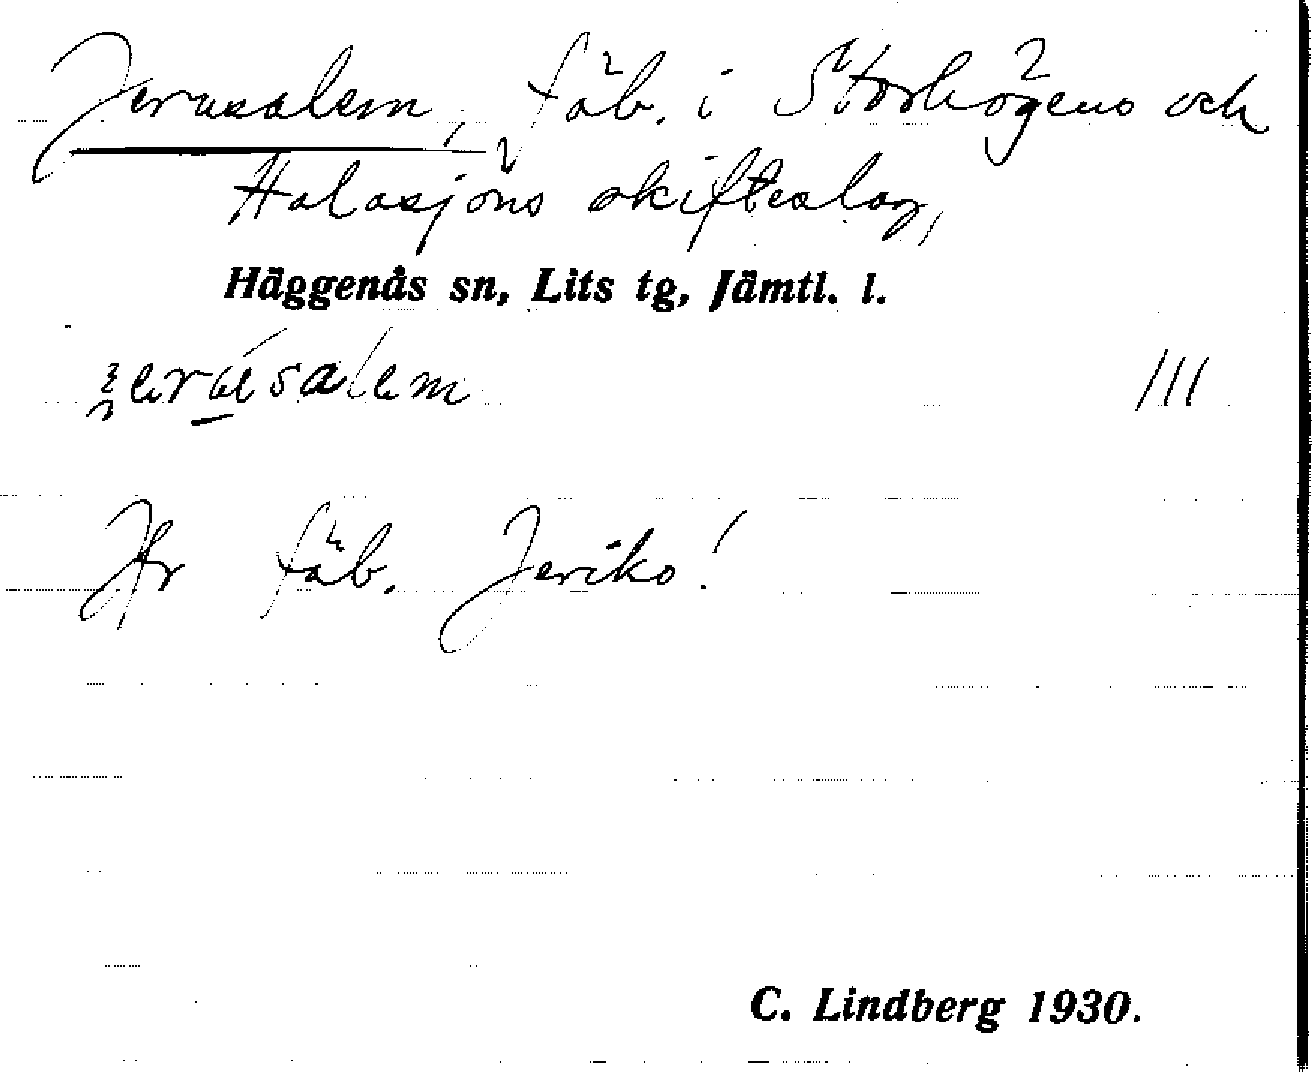 Jerusalem, fäb. i Storhögens och
Halasjöns skifteslag,
Häggenås sn, Lits tg, Jämtl. l.
III
Jfr fäb. Jeriko!
C. Lindberg 1930.